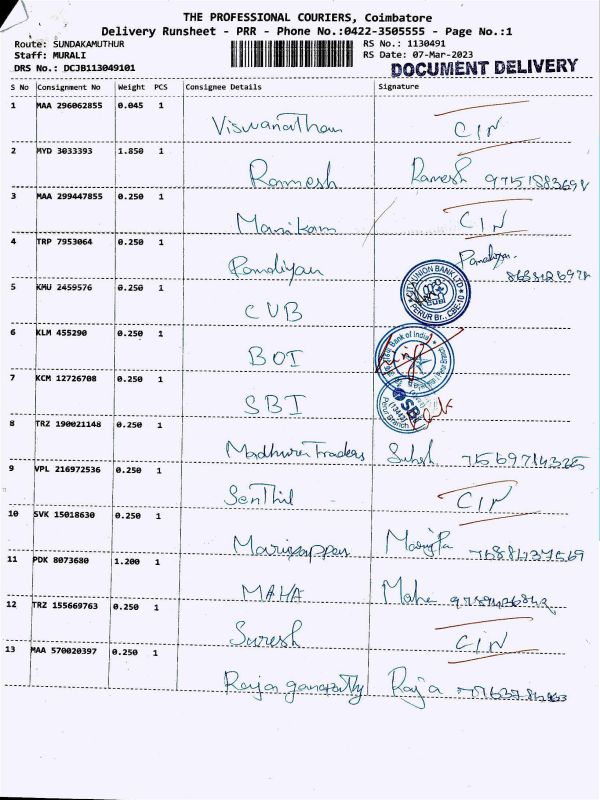 THE PROFESSIONAL COURIERS, Coimbatore
Delivery Runsheet - PRR - Phone No.:0422-3505555 - Page No.:1
Route: SUNDAKAMUTHUR RS No.: 1130491
Staff: MURALI RS Date: 07-Mar-2023
DRS No.: DCJB113049101 DOCUMENT DELIVERY
S No Consignment No Weight PCS Consignee Details Signature
1 MAA 296062855 0.045 1
Viswanathan CIN
2 MYD 3033393 1.850 1
Ramesh Ramesh
3 MAA 299447855 0.250 1
Manikam CIN
4 TRP 7953064 0.250 1
Pandiyan
5 KMU 2459576 0.250 1
CUB
UNION BANK LTD
PERUR Br., CBE-10
6 KLM 455290 0.250 1
BOI
Bank of India
7 KCM 12726708 0.250 1
SBI
SBI
8 TRZ 190021148 0.250 1
Madhura Traders
9 VPL 216972536 0.250 1
Senthil CIN
10 SVK 15018630 0.250 1
Mariyappan
11 PDK 8073680 1.200 1
MAHA Maha
12 TRZ 155669763 0.250 1
Suresh CIN
13 MAA 570020397 0.250 1
Raja ganapathy Raja